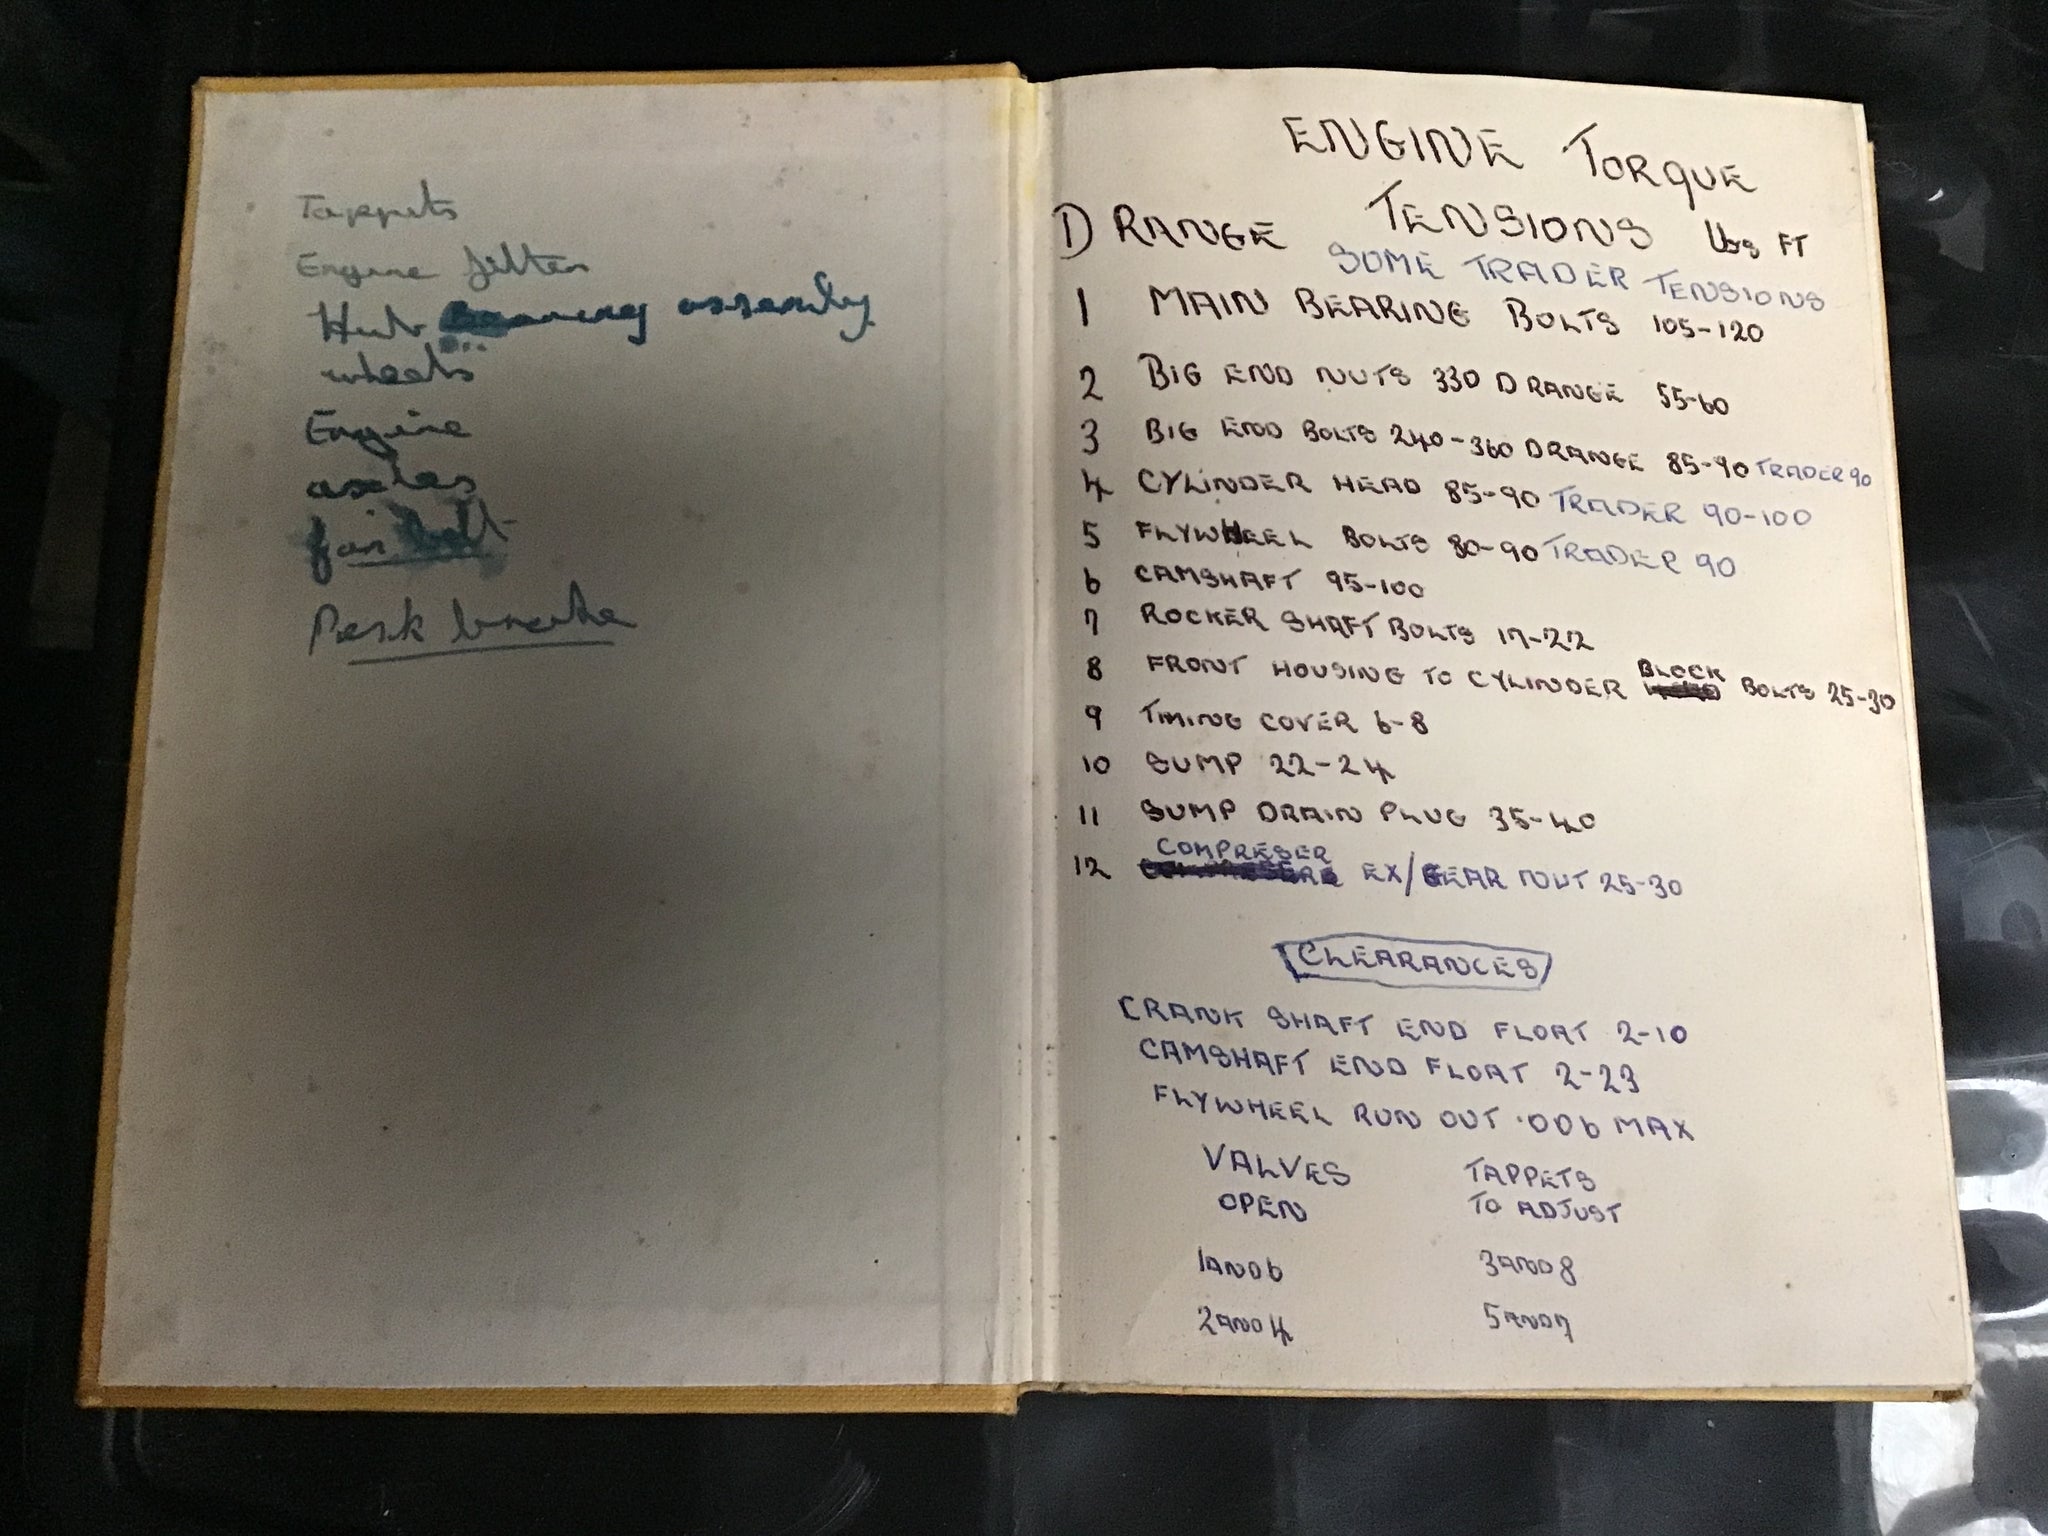 Tappets
Engine filter
Hub bearing assembly
wheels
Engine
axles
fan belt
Park brake
ENGINE TORQUE
D RANGE TENSIONS lbs FT
SOME TRADER TENSIONS
1 MAIN BEARING BOLTS 105-120
2 BIG END NUTS 330 D RANGE 55-60
3 BIG END BOLTS 240-360 D RANGE 85-90 TRADER 90
4 CYLINDER HEAD 85-90 TRADER 90-100
5 FLYWHEEL BOLTS 80-90 TRADER 90
6 CAMSHAFT 95-100
7 ROCKER SHAFT BOLTS 17-22
8 FRONT HOUSING TO CYLINDER BLOCK BOLTS 25-30
9 TIMING COVER 6-8
10 SUMP 22-24
11 SUMP DRAIN PLUG 35-40
12 COMPRESER EX/GEAR NUT 25-30
CLEARANCES
CRANK SHAFT END FLOAT 2-10
CAMSHAFT END FLOAT 2-23
FLYWHEEL RUN OUT .006 MAX
VALVES TAPPETS
OPEN TO ADJUST
1 AND 6 3 AND 8
2 AND 4 5 AND 7